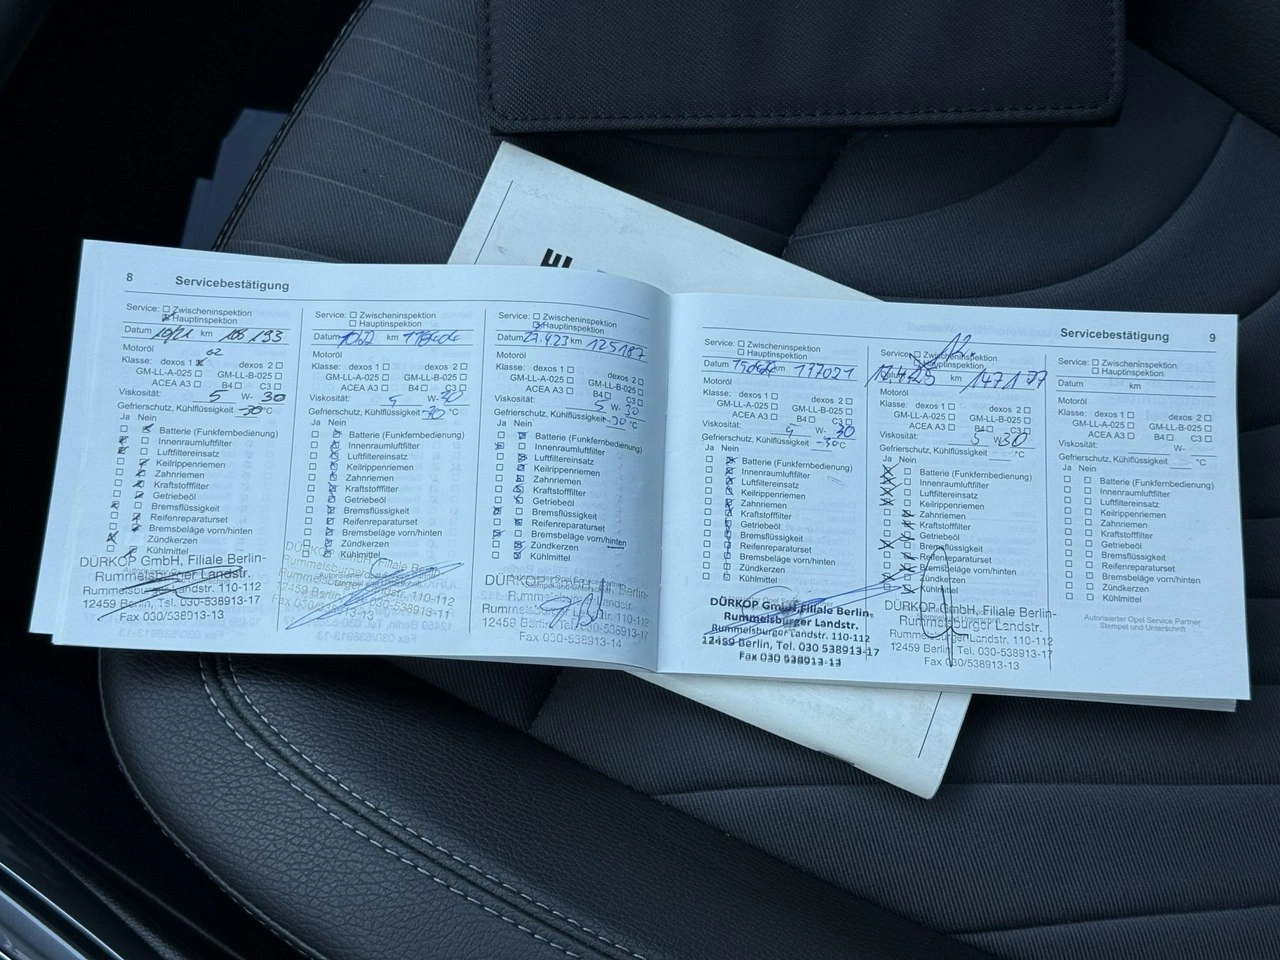 8 Servicebestätigung
Service: Zwischeninspektion
Hauptinspektion
Datum 10/21 km 108 193
Motoröl
Klasse: dexos 1 dexos 2
GM-LL-A-025 GM-LL-B-025
ACEA A3 B4 C3
Viskosität: 5 W- 30
Gefrierschutz, Kühlflüssigkeit -30 °C
Ja Nein
Batterie (Funkfernbedienung)
Innenraumluftfilter
Luftfiltereinsatz
Keilrippenriemen
Zahnriemen
Kraftstofffilter
Getriebeöl
Bremsflüssigkeit
Reifenreparaturset
Bremsbeläge vorn/hinten
Zündkerzen
Kühlmittel
DÜRKOP GmbH, Filiale Berlin-
Rummelsburger Landstr.
Rummelsburger Landstr. 110-112
12459 Berlin, Tel. 030-538913-17
Fax 030/538913-13
Service: Zwischeninspektion
Hauptinspektion
Datum km
Motoröl
Klasse: dexos 1 dexos 2
GM-LL-A-025 GM-LL-B-025
ACEA A3 B4 C3
Viskosität: 5 W- 30
Gefrierschutz, Kühlflüssigkeit 30 °C
Ja Nein
Batterie (Funkfernbedienung)
Innenraumluftfilter
Luftfiltereinsatz
Keilrippenriemen
Zahnriemen
Kraftstofffilter
Getriebeöl
Bremsflüssigkeit
Reifenreparaturset
Bremsbeläge vorn/hinten
Zündkerzen
Kühlmittel
Service: Zwischeninspektion
Hauptinspektion
Datum km 125187
Motoröl
Klasse: dexos 1 dexos 2
GM-LL-A-025 GM-LL-B-025
ACEA A3 B4 C3
Viskosität: 5 W- 30
Gefrierschutz, Kühlflüssigkeit -30 °C
Ja Nein
Batterie (Funkfernbedienung)
Innenraumluftfilter
Luftfiltereinsatz
Keilrippenriemen
Zahnriemen
Kraftstofffilter
Getriebeöl
Bremsflüssigkeit
Reifenreparaturset
Bremsbeläge vorn/hinten
Zündkerzen
Kühlmittel
Servicebestätigung 9
Service: Zwischeninspektion
Hauptinspektion
Datum km 137021
Motoröl
Klasse: dexos 1 dexos 2
GM-LL-A-025 GM-LL-B-025
ACEA A3 B4 C3
Viskosität: 5 W- 30
Gefrierschutz, Kühlflüssigkeit -30 °C
Ja Nein
Batterie (Funkfernbedienung)
Innenraumluftfilter
Luftfiltereinsatz
Keilrippenriemen
Zahnriemen
Kraftstofffilter
Getriebeöl
Bremsflüssigkeit
Reifenreparaturset
Bremsbeläge vorn/hinten
Zündkerzen
Kühlmittel
DÜRKOP GmbH, Filiale Berlin-
Rummelsburger Landstr.
Rummelsburger Landstr. 110-112
12459 Berlin, Tel. 030 538913-17
Fax 030 538913-13
12.
Service: Zwischeninspektion
Hauptinspektion
km 147177
Motoröl
Klasse: dexos 1 dexos 2
GM-LL-A-025 GM-LL-B-025
ACEA A3 B4 C3
Viskosität: 5 W 30
Gefrierschutz, Kühlflüssigkeit °C
Ja Nein
Batterie (Funkfernbedienung)
Innenraumluftfilter
Luftfiltereinsatz
Keilrippenriemen
Zahnriemen
Kraftstofffilter
Getriebeöl
Bremsflüssigkeit
Reifenreparaturset
Bremsbeläge vorn/hinten
Zündkerzen
Kühlmittel
DÜRKOP GmbH, Filiale Berlin-
Rummelsburger Landstr.
Rummelsburger Landstr. 110-112
12459 Berlin, Tel. 030-538913-17
Fax 030/538913-13
Service: Zwischeninspektion
Hauptinspektion
Datum km
Motoröl
Klasse: dexos 1 dexos 2
GM-LL-A-025 GM-LL-B-025
ACEA A3 B4 C3
Viskosität: W-
Gefrierschutz, Kühlflüssigkeit °C
Ja Nein
Batterie (Funkfernbedienung)
Innenraumluftfilter
Luftfiltereinsatz
Keilrippenriemen
Zahnriemen
Kraftstofffilter
Getriebeöl
Bremsflüssigkeit
Reifenreparaturset
Bremsbeläge vorn/hinten
Zündkerzen
Kühlmittel
Autorisierter Opel Service Partner
Stempel und Unterschrift